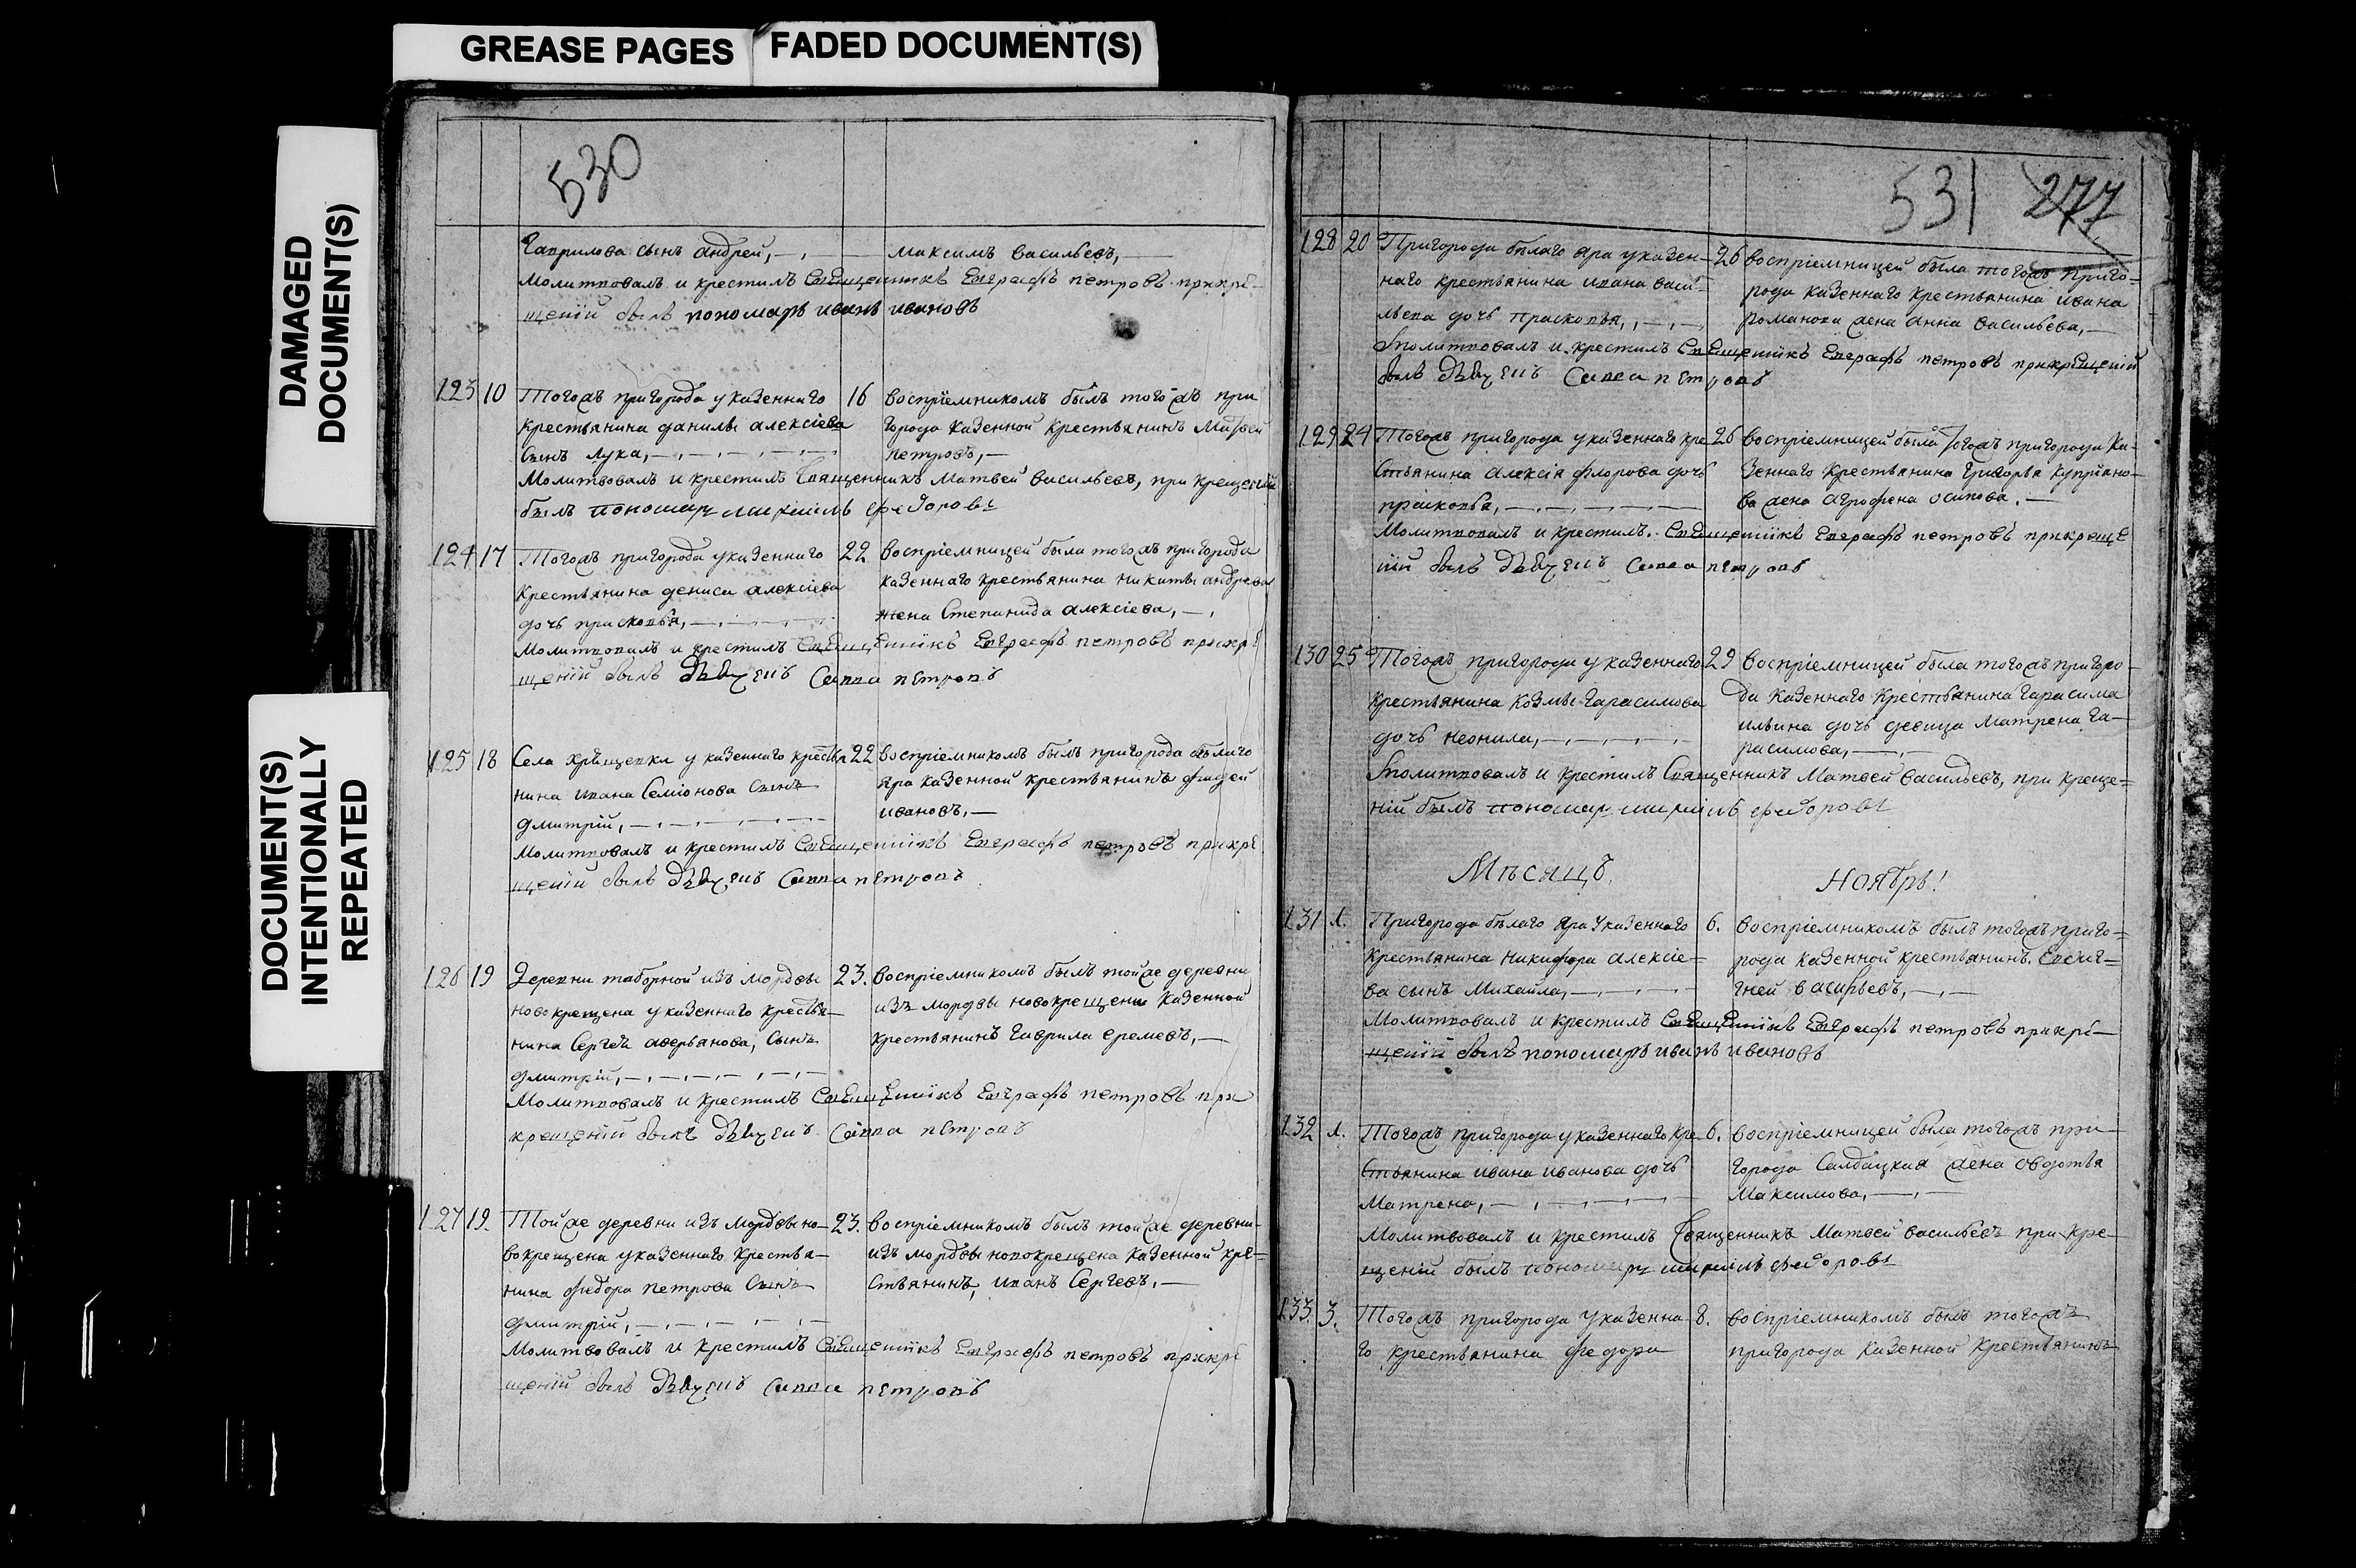 GREASE PAGES
FADED DOCUMENT(S)
DAMAGED DOCUMENT(S)
DOCUMENT(S) INTENTIONALLY REPEATED
530
Гаврилова сынъ андрей,
максимъ васильевъ,
молитвовалъ и крестилъ Священникъ Евграфъ петровъ прикре-
щенiй былъ пономарь иванъ ивановъ
123 10 Тогожъ пригорода у казеннаго
крестьянина данилы алексiева
сынъ лука,
16 воспрiемникомъ былъ того жъ при
города казенной крестьянинъ Матвей
петровъ,
Молитвовалъ и крестилъ Священникъ Матвей васильевъ, при крещенiи
былъ пономарь федоровъ
124 17 Тогожъ пригорода у казеннаго
крестьянина дениса алексiева
дочь прасковья,
22 воспрiемницей была тогожъ пригорода
казеннаго крестьянина никиты андреева
жена Степанида алексiева,
молитвовалъ и крестилъ Священникъ Евграфъ петровъ прикре
щенiй былъ Дьячекъ Савва петровъ
125 18 Села у казеннаго крестья
нина ивана Семiонова сынъ
дмитрiй,
22 воспрiемникомъ былъ пригорода белаго
яра казенной крестьянинъ фадей
ивановъ,
молитвовалъ и крестилъ Священникъ Евграфъ петровъ прикре
щенiи былъ Дьячекъ Савва петровъ
126 19 Деревни таборной изъ мордвы
новокрещена у казеннаго крестья-
нина Сергея аверьянова, сынъ
дмитрiй,
23. воспрiемникомъ былъ тойже деревни
изъ мордвы новокрещенъ казенной
крестьянинъ Гаврила еремевъ,
Молитвовалъ и крестилъ Священникъ Евграфъ петровъ при
крещенiй былъ Дьячекъ Савва петровъ
127 19. Тойже деревни изъ мордвы но-
вокрещена у казеннаго крестья-
нина федора петрова сынъ
дмитрiй,
23. воспрiемникомъ былъ тойже деревни
изъ мордвы новокрещена казенной кре-
стьянинъ, иванъ Сергевъ,
Молитвовалъ и крестилъ Священникъ Евграфъ петровъ прикре
щенiй былъ Дьячекъ Савва петровъ
531 277
128 20 Пригорода белаго яра у казен-
наго крестьянина ивана васи-
льева дочь прасковья,
26 воспрiемницей была тогожъ приго-
рода казеннаго крестьянина ивана
романова жена анна васильева,
молитвовалъ и крестилъ Священникъ Евграфъ петровъ прикрещенiй
былъ Дьячекъ Савва петровъ
129 24 Тогожъ пригорода у казеннаго кре
стьянина алексiя флорова дочь
прасковья,
26 воспрiемницей была тогожъ пригорода ка-
зеннаго крестьянина григорья куприяно-
ва жена агрофена осипова.
Молитвовалъ и крестилъ. Священникъ Евграфъ петровъ прикреще
нiй былъ Дьячекъ Савва петровъ
130 25 Тогожъ пригорода у казеннаго
крестьянина козмы гарасимова
дочь неонила,
29 воспрiемницей была тогожъ пригоро-
да казеннаго крестьянина гарасима
ильина дочь девица матрена га-
расимова,
молитвовалъ и крестилъ Священникъ Матвей васильевъ, при креще-
нiй былъ пономарь федоровъ
Мѣсяцъ. Ноябрь!
131 1. Пригорода белаго яра у казеннаго
крестьянина никифора алексiе-
ва сынъ михайла,
6. воспрiемникомъ былъ тогожъ приго-
рода казенной крестьянинъ. Евсиг-
ней васильевъ,
молитвовалъ и крестилъ Священникъ Евграфъ петровъ прикре-
щенiй былъ пономарь иванъ ивановъ
132 1. Тогожъ пригорода у казеннаго кре
стьянина ивана иванова дочь
матрена,
6. воспрiемницей была тогожъ при-
города Салдацкая жена овдотья
максимова,
молитвовалъ и крестилъ Священникъ Матвей васильевъ при кре-
щенiй былъ пономарь федоровъ
133. 3. Тогожъ пригорода у казенна
го крестьянина федора
8. воспрiемникомъ былъ тогожъ
пригорода казенной крестьянинъ